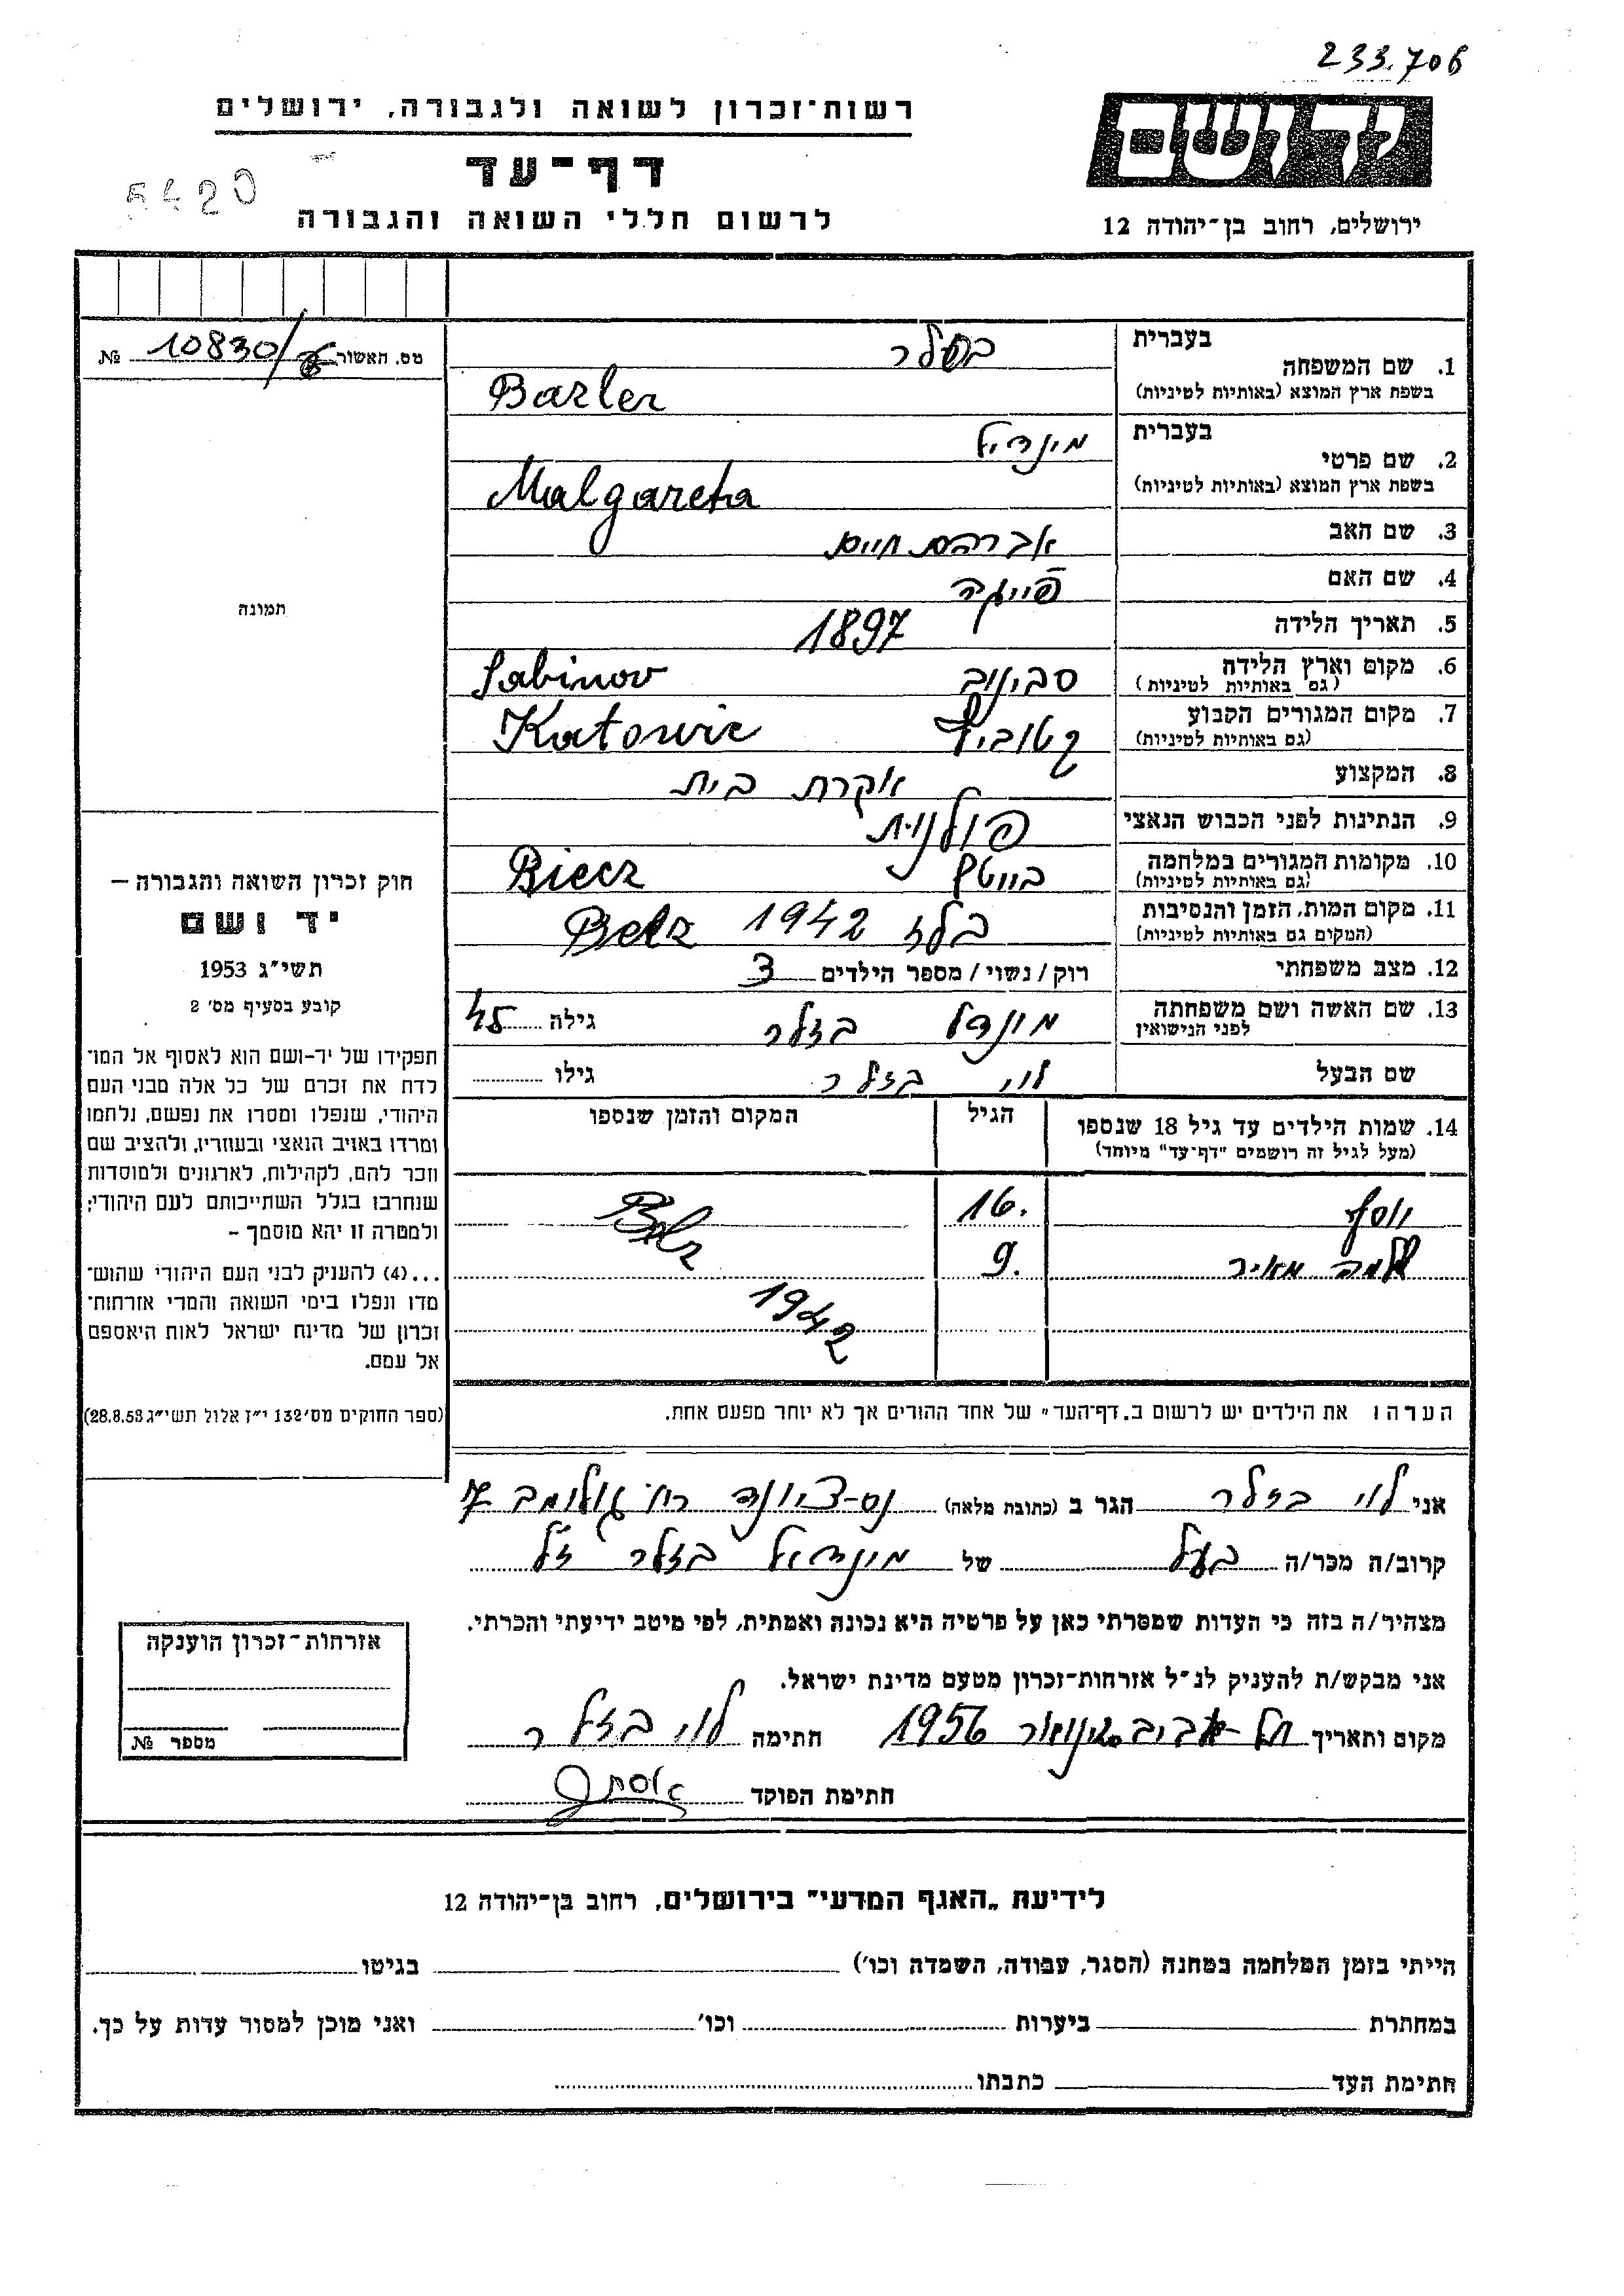 233.706
רשות־זכרון לשואה ולגבורה, ירושלים
דף־עד
לרשום חללי השואה והגבורה
5420
יד ושם
ירושלים, רחוב בן־יהודה 12
מס. האשור 10830/ №
תמונה
חוק זכרון השואה והגבורה —
יד ושם
תשי״ג 1953
קובע בסעיף מס׳ 2
תפקידו של יד-ושם הוא לאסוף אל המו־
לדת את זכרם של כל אלה מבני העם
היהודי, שנפלו ומסרו את נפשם, נלחמו
ומרדו באויב הנאצי ובעוזריו, ולהציב שם
וזכר להם, לקהילות, לארגונים ולמוסדות
שנחרבו בגלל השתייכותם לעם היהודי;
ולמטרה זו יהא מוסמך –
...(4) להעניק לבני העם היהודי שהוש־
מדו ונפלו בימי השואה והמרי אזרחות־
זכרון של מדינת ישראל לאות היאספם
אל עמם.
(ספר החוקים מס׳ 132 י״ז אלול תשי״ג 28.8.53)
1. שם המשפחה
בעברית בזלר
בשפת ארץ המוצא (באותיות לטיניות) Bazler
2. שם פרטי
בעברית מינדיל
בשפת ארץ המוצא (באותיות לטיניות) Malgareta
3. שם האב אברהם חיים
4. שם האם פייגה
5. תאריך הלידה 1897
6. מקום וארץ הלידה סבינוב Sabinov
(גם באותיות לטיניות)
7. מקום המגורים הקבוע קטוביץ Katowic
(גם באותיות לטיניות)
8. המקצוע עקרת בית
9. הנתינות לפני הכבוש הנאצי פולנית
10. מקומות המגורים במלחמה Biecz
(גם באותיות לטיניות)
11. מקום המות, הזמן והנסיבות בלז 1942 Belz
(המקום גם באותיות לטיניות)
12. מצב משפחתי רוק / נשוי / מספר הילדים 3
13. שם האשה ושם משפחתה מינדל בזלר גילה 45
לפני הנישואין
שם הבעל לוי בזלר גילו
14. שמות הילדים עד גיל 18 שנספו הגיל המקום והזמן שנספו
(מעל לגיל זה רושמים "דף־עד" מיוחד)
יוסף 16. Belz
שלמה מאיר 9.
1942
הערה ו את הילדים יש לרשום ב„דף־העד״ של אחד ההורים אך לא יותר מפעם אחת.
אני לוי בזלר הגר ב (כתובת מלאה) נס-ציונה רח׳ גולומב 7
קרוב/ה מכר/ה בעל של מינדיל בזלר ז״ל
מצהיר/ה בזה כי העדות שמסרתי כאן על פרטיה היא נכונה ואמתית, לפי מיטב ידיעתי והכרתי.
אני מבקש/ת להעניק לנ״ל אזרחות־זכרון מטעם מדינת ישראל.
מקום ותאריך תל-אביב ינואר 1956 חתימה לוי בזלר
חתימת הפוקד
אזרחות־זכרון הוענקה
מספר №
לידיעת „האגף המדעי״ בירושלים, רחוב בן־יהודה 12
הייתי בזמן המלחמה במחנה (הסגר, עבודה, השמדה וכו׳) בגיטו
במחתרת ביערות וכו׳ ואני מוכן למסור עדות על כך.
חתימת העד כתבתו